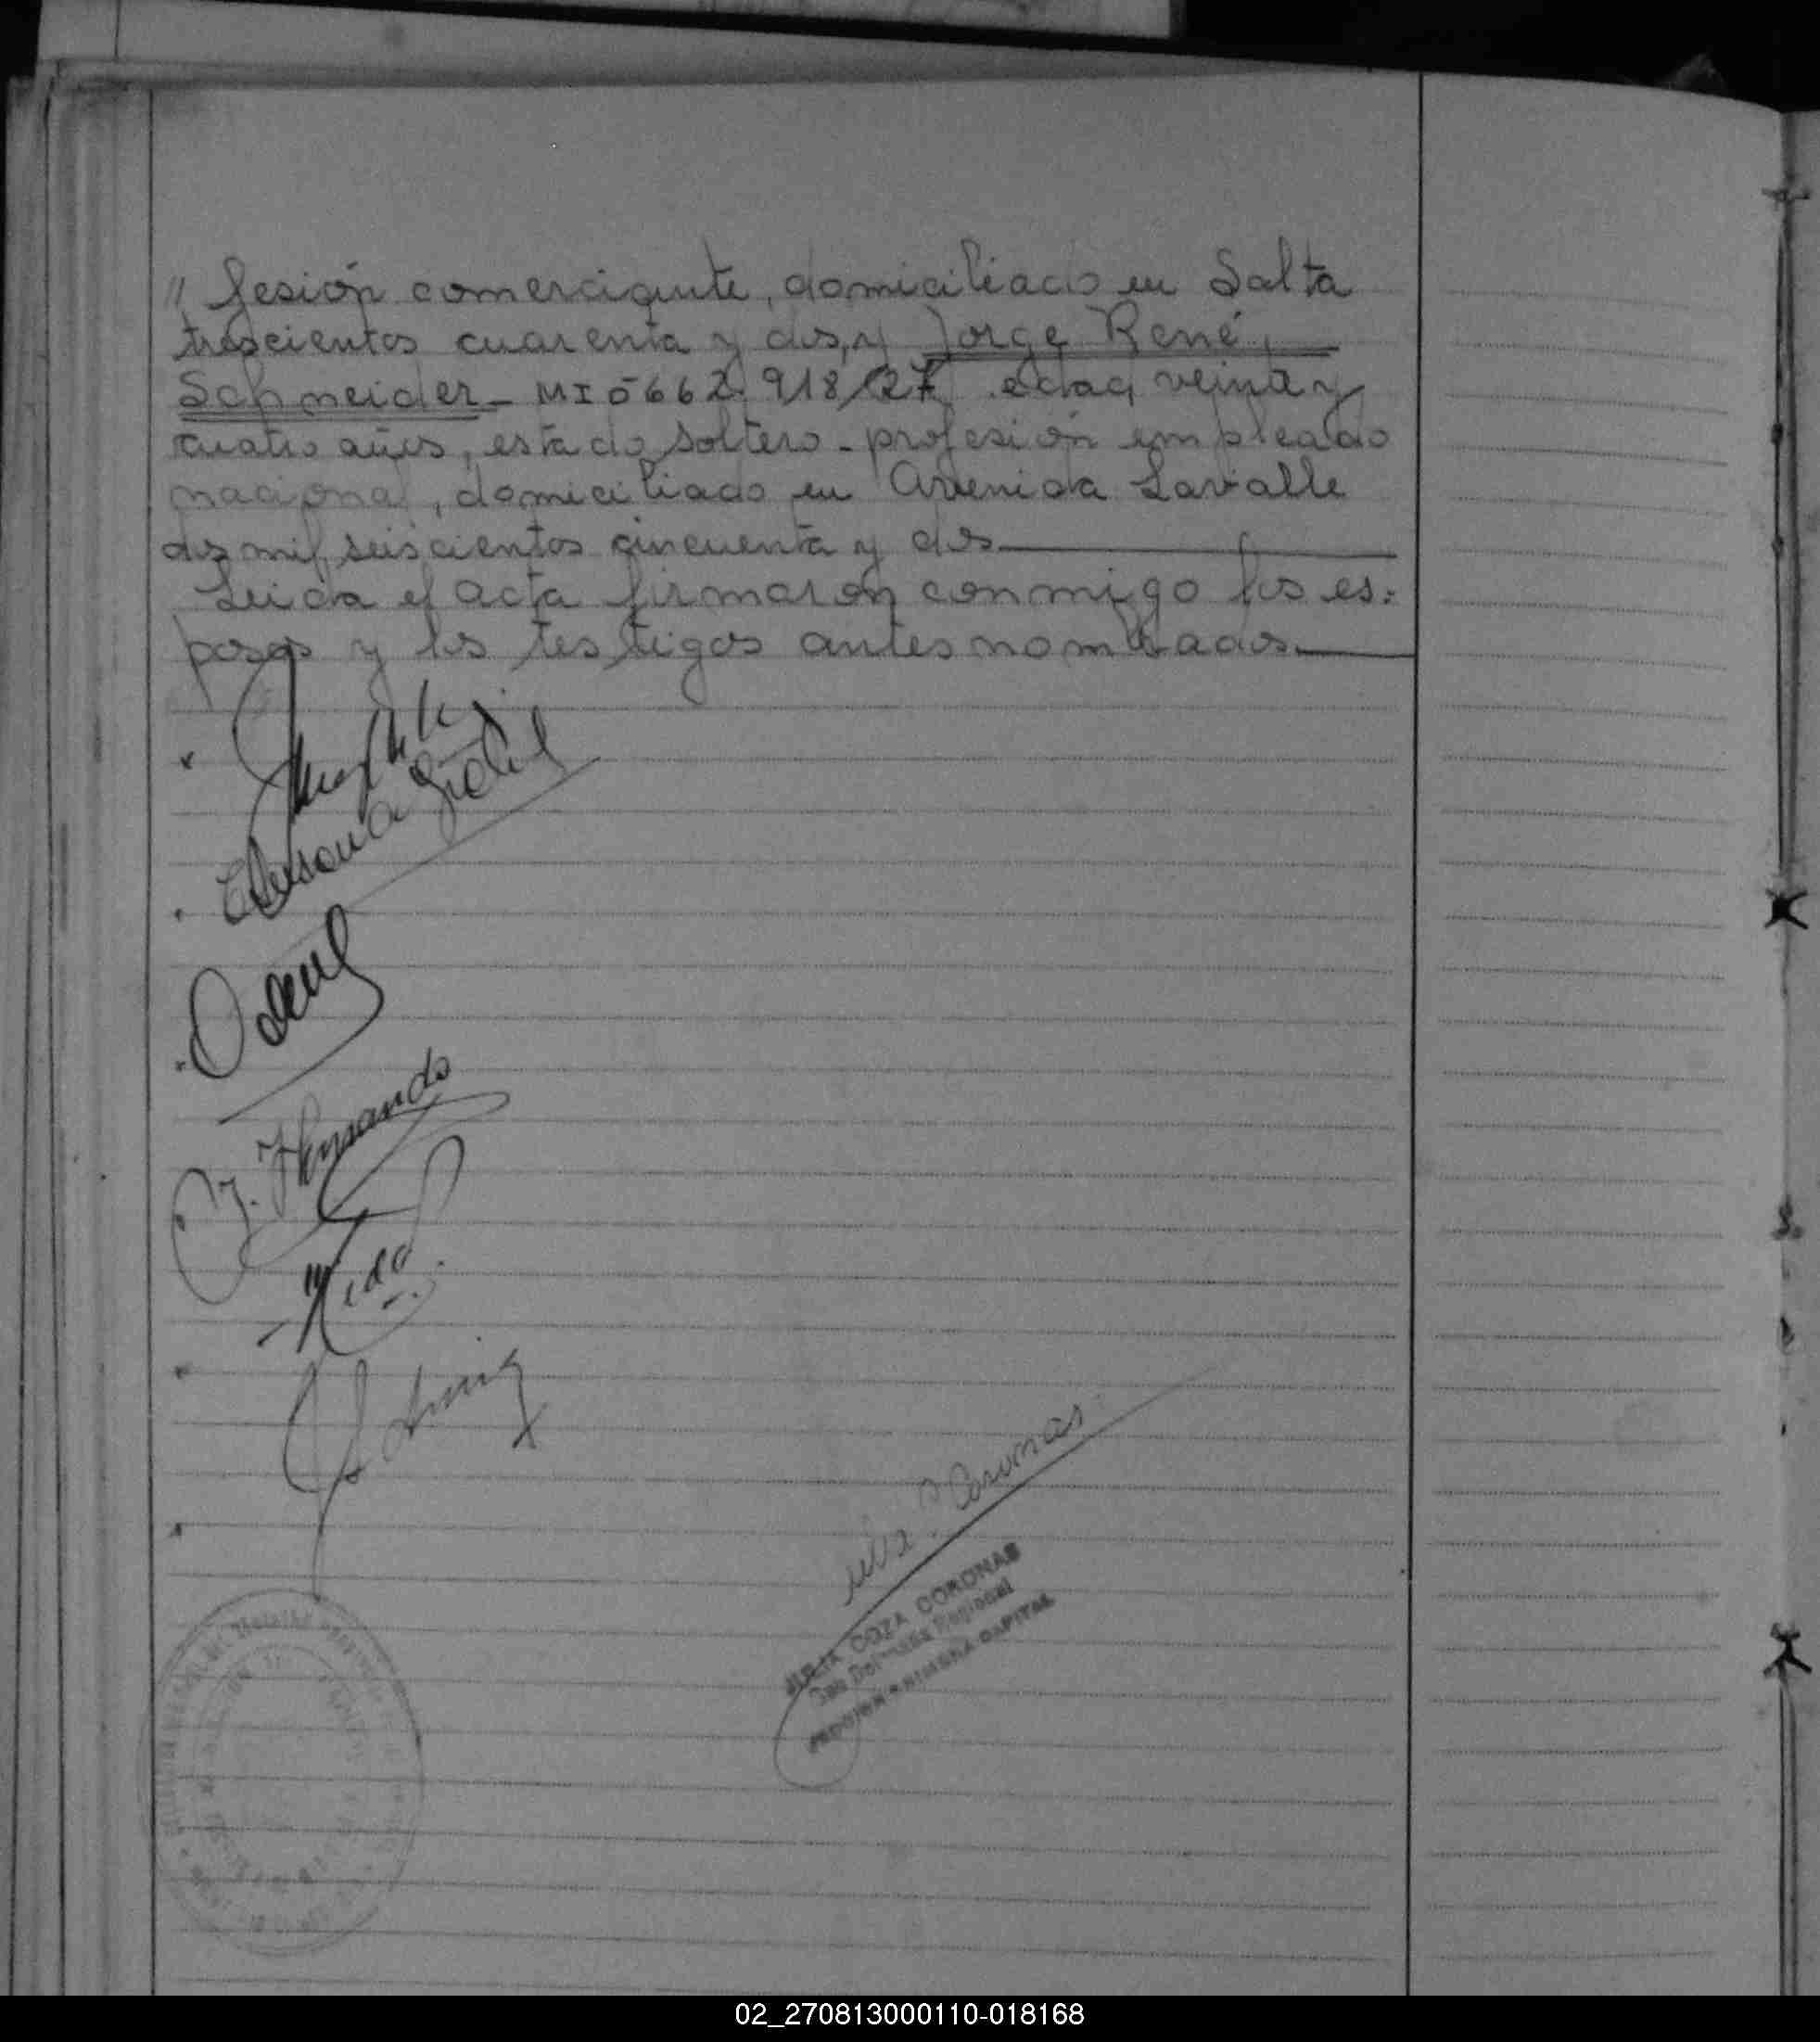 " fesión comerciante, domiciliado en Salta
trescientos cuarenta y dos, y Jorge René,
Schneider - MI 5662.918/27 edad veinte y
cuatro años, estado soltero - profesión empleado
nacional, domiciliado en Avenida Lavalle
dos mil seiscientos cincuenta y dos
Leída el acta firmaron conmigo los es=
posos y los testigos antes nombrados
J. Hernando
Coronas
JULIA COZA CORONAS
Regional
PRIMERA CAPITAL
02_270813000110-018168